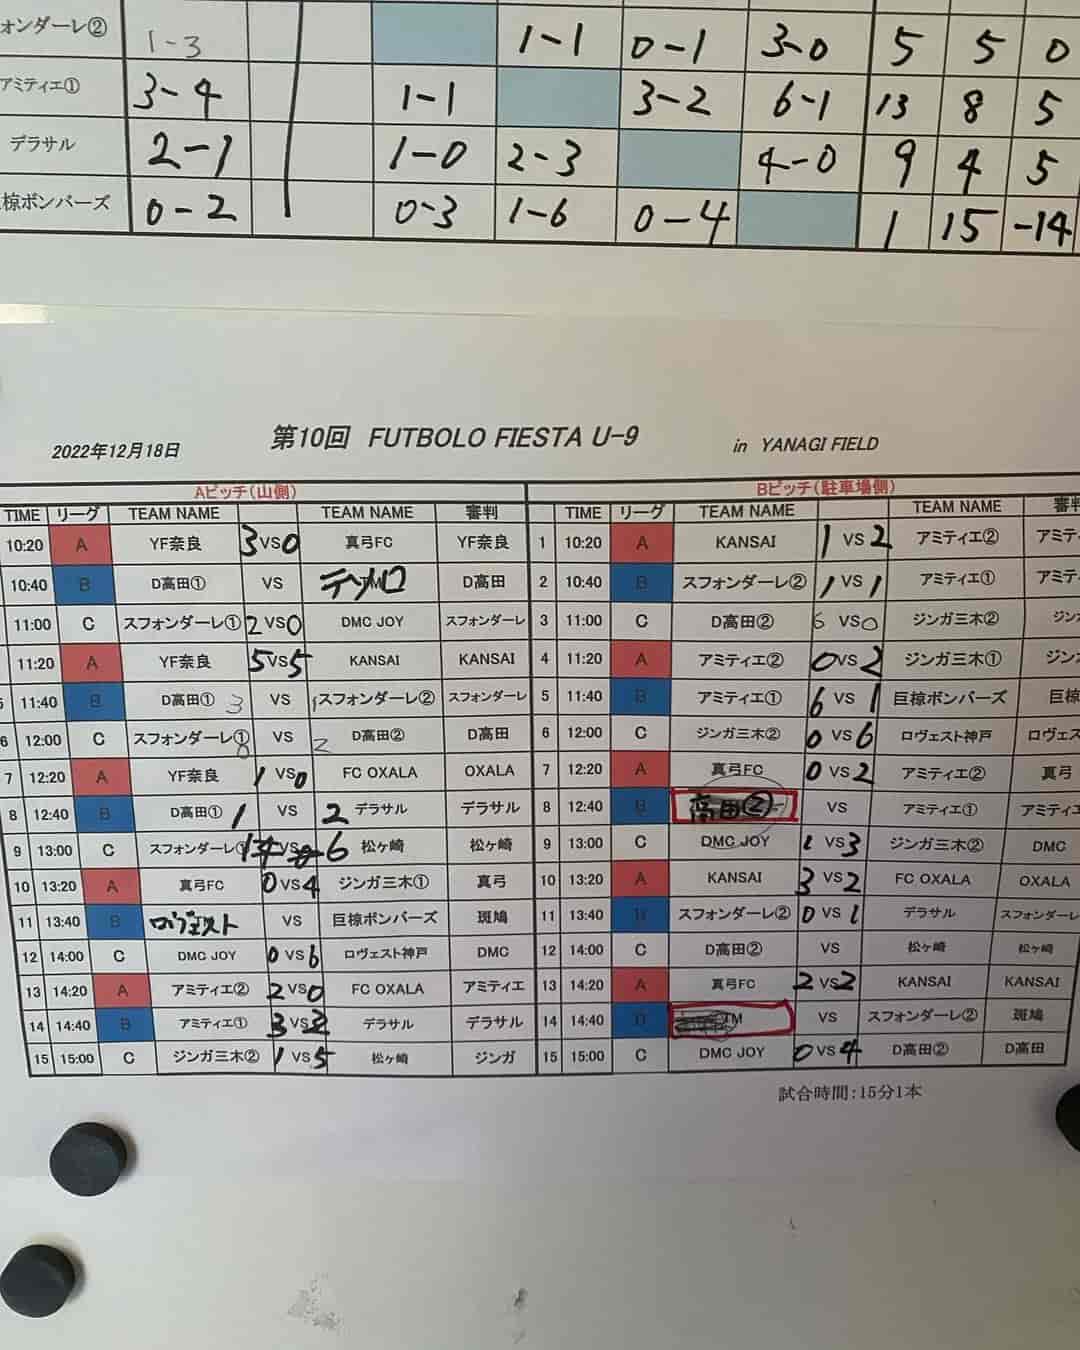 ォンダーレ② 1-3 1-1 0-1 3-0 5 5 0
アミティエ① 3-4 1-1 3-2 6-1 13 8 5
デラサル 2-1 1-0 2-3 4-0 9 4 5
椋ボンバーズ 0-2 0-3 1-6 0-4 1 15 -14
2022年12月18日 第10回 FUTBOLO FIESTA U-9 in YANAGI FIELD
Aピッチ(山側) Bピッチ(駐車場側)
TIME リーグ TEAM NAME TEAM NAME 審判 TIME リーグ TEAM NAME TEAM NAME 審判
10:20 A YF奈良 3 VS 0 真弓FC YF奈良 1 10:20 A KANSAI 1 VS 2 アミティエ② アミテ
10:40 B D高田① VS D高田 2 10:40 B スフォンダーレ② 1 VS 1 アミティエ① アミテ
11:00 C スフォンダーレ① 2 VS 0 DMC JOY スフォンダーレ 3 11:00 C D高田② 6 VS 0 ジンガ三木② ジン
11:20 A YF奈良 5 VS 5 KANSAI KANSAI 4 11:20 A アミティエ② 0 VS 2 ジンガ三木① ジン
5 11:40 B D高田① 3 VS 1 スフォンダーレ② スフォンダーレ 5 11:40 B アミティエ① 6 VS 1 巨椋ボンバーズ 巨椋
6 12:00 C スフォンダーレ① 0 VS 2 D高田② D高田 6 12:00 C ジンガ三木② 0 VS 6 ロヴェスト神戸 ロヴェス
7 12:20 A YF奈良 1 VS 0 FC OXALA OXALA 7 12:20 A 真弓FC 0 VS 2 アミティエ② 真弓
8 12:40 B D高田① 1 VS 2 デラサル デラサル 8 12:40 B 高田② VS アミティエ① アミティエ
9 13:00 C スフォンダーレ① 1 VS 6 松ヶ崎 松ヶ崎 9 13:00 C DMC JOY 1 VS 3 ジンガ三木② DMC
10 13:20 A 真弓FC 0 VS 4 ジンガ三木① 真弓 10 13:20 A KANSAI 3 VS 2 FC OXALA OXALA
11 13:40 B ロヴェスト VS 巨椋ボンバーズ 斑鳩 11 13:40 B スフォンダーレ② 0 VS 1 デラサル スフォンダーレ
12 14:00 C DMC JOY 0 VS 6 ロヴェスト神戸 DMC 12 14:00 C D高田② VS 松ヶ崎 松ヶ崎
13 14:20 A アミティエ② 2 VS 0 FC OXALA アミティエ 13 14:20 A 真弓FC 2 VS 2 KANSAI KANSAI
14 14:40 B アミティエ① 3 VS 2 デラサル デラサル 14 14:40 B TM VS スフォンダーレ② 斑鳩
15 15:00 C ジンガ三木② 1 VS 5 松ヶ崎 ジンガ 15 15:00 C DMC JOY 0 VS 4 D高田② D高田
試合時間:15分1本